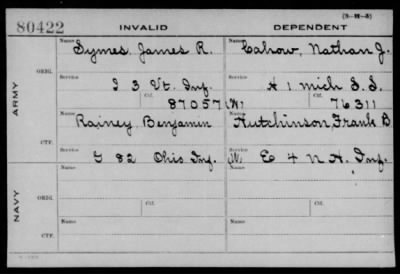 80422 INVALID DEPENDENT (3-H-5)
Name Name
Symes, James R. Cahow, Nathan J.
ORIG.
Service Service
I 3 Vt. Inf. H 1 Mich S.S.
ARMY
Ctf. Ctf.
87057 (W) 76311
Name Name
Rainey, Benjamin Hutchinson, Frank B
CTF.
Service Service
G 82 Ohio Inf. (M) E 4 N.H. Inf.
Name Name
ORIG.
Service Service
NAVY
Ctf. Ctf.
Name Name
CTF.
Service Service